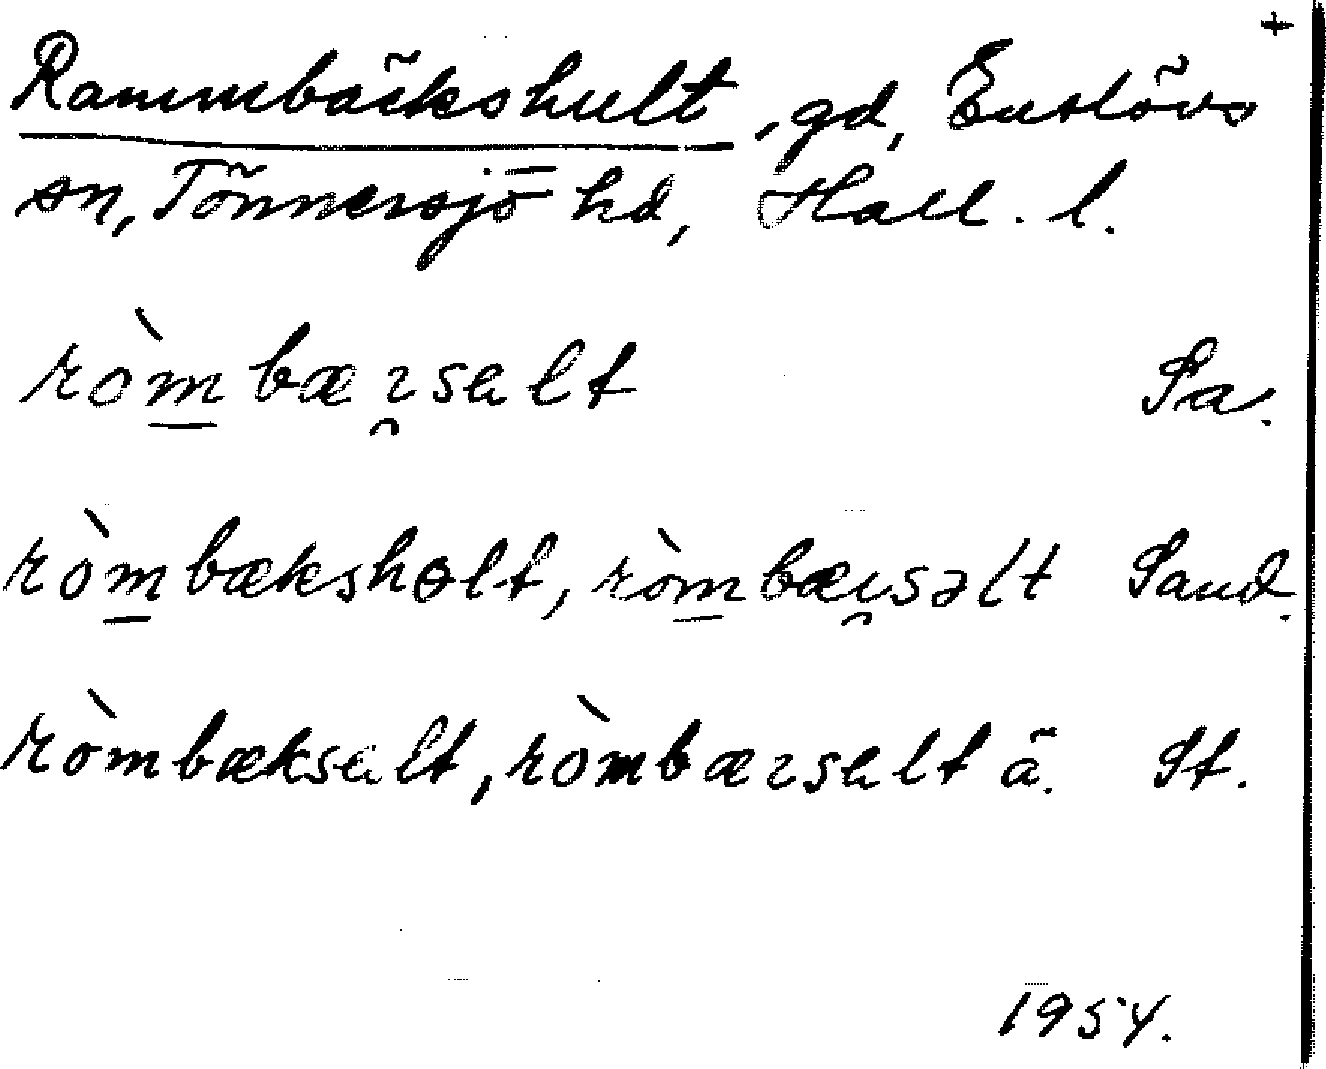 +
Rammbäckshult, gd, Enslövs
sn, Tönnersjö hd, Hall. l.
ròmbæɿsalt Sa.
ròmbæksholt, ròmbæɿsəlt Sand.
ròmbæksalt, ròmbæɿsalt ä. St.
1954.